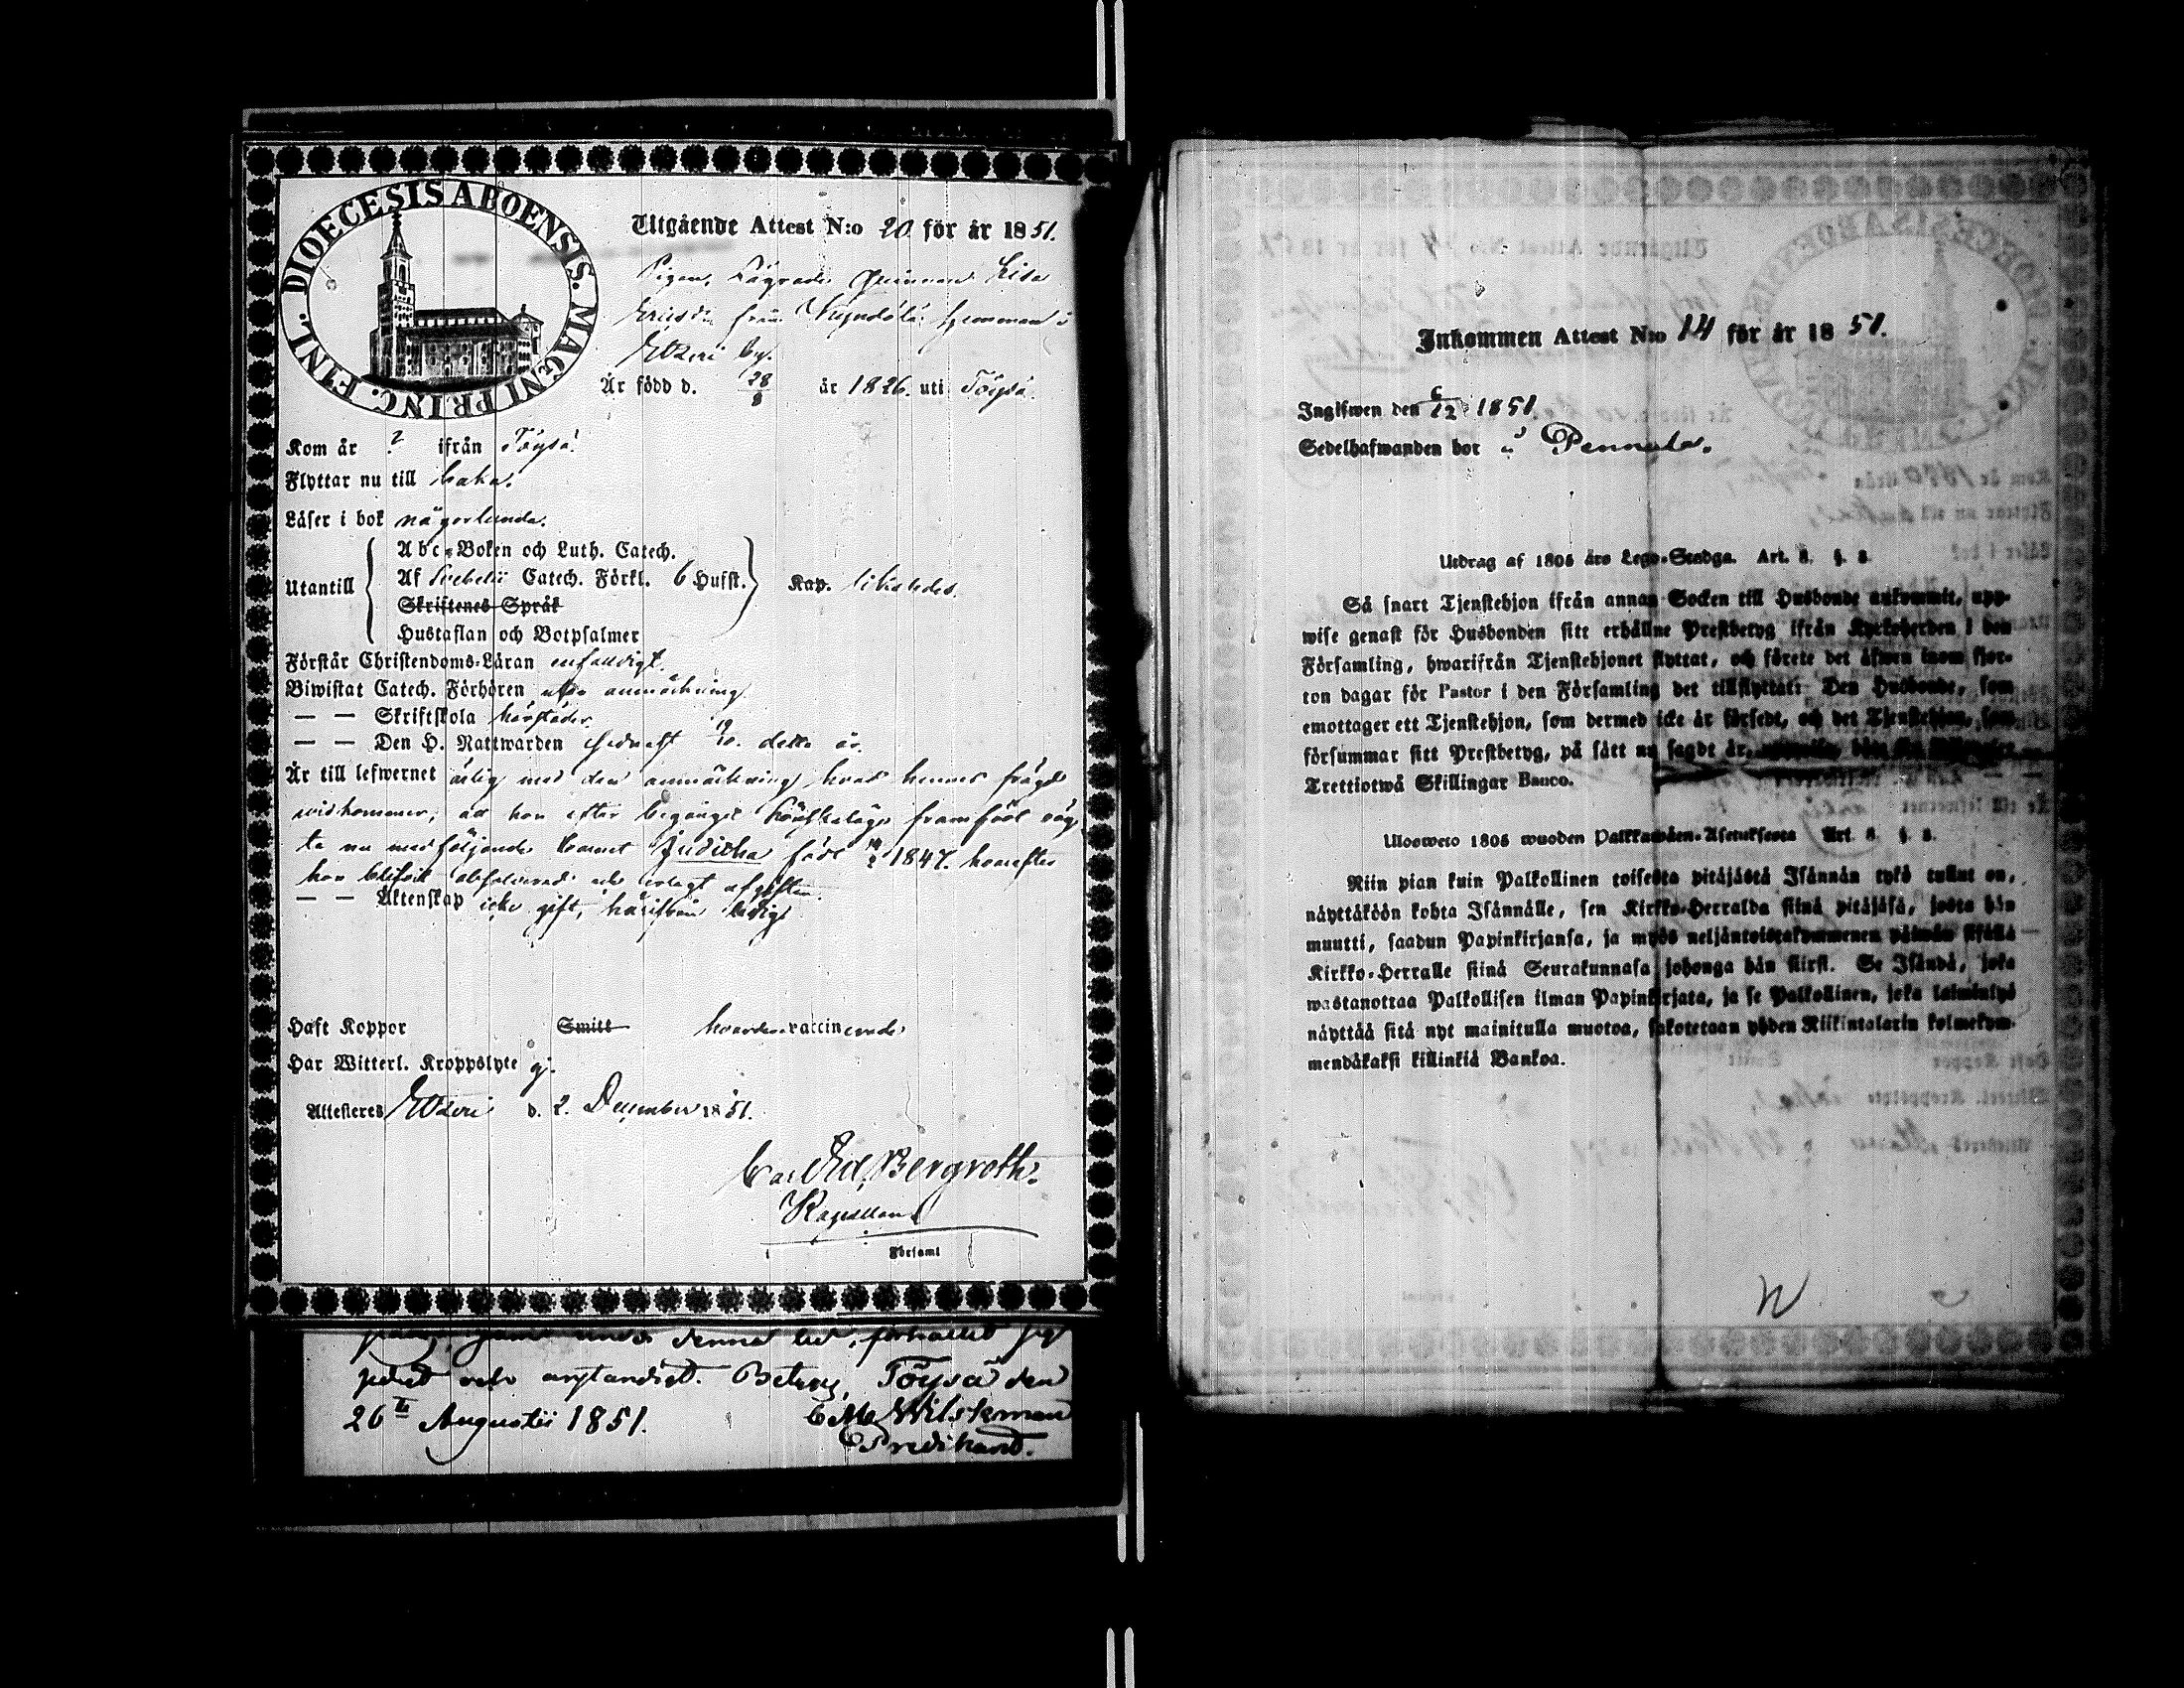 DIOECESIS ABOENSIS. MAGNI PRINC. FINL.
Utgående Attest N:o 20 för år 1851.
Pigan, Lägrade Qvinnan Lisa
Ericsdr från hemman i
Etseri by.
Är född d. 28/8 år 1826. uti Töysä.
Kom år ? ifrån Töysä.
Flyttar nu till baka.
Läser i bok någorlunda.
Utantill
Abc-Boken och Luth. Catech.
Af Svebelii Catech. Förkl. 6 Hufst. Kap. likaledes.
Skriftenes Språk
Hustaflan och Botpsalmer
Förstår Christendoms-Läran enfaldigt.
Biwistat Catech. Förhören utan anmärkning
— — Skriftskola härstädes.
— — Den H. Nattwarden sednast 19/10. detta år.
Är till lefwernet ärlig med den anmärkning hvad hennes frägd
widkommer, att hon efter begånget framfödt oäg
ta nu medföljande barnet Juditha född 14/2 1847. hvarefter
hon blifvit absolverad och erlagt afgiften.
— — Äktenskap icke gift, härifrån ledig
Haft Koppor Smitt vaccinerad
Har Witterl. Kroppslyte ej.
Attesteres Etseri d. 2. December 1851.
Carl Ad. Bergroth.
Kapellan
Församl
samt under denna tid, förhållit sig
och anständigt. Betyg, Töysä den
26te Augustii 1851. C M Wilskman
Predikant.
Inkommen Attest N:o 14 för år 1851.
Ingifwen den 6/12 1851.
Sedelhafwanden bor å Pennala.
Utdrag af 1805 års Lego-Stadga. Art. 8. §. 8.
Så snart Tjenstehjon ifrån annan Socken till Husbonde ankommit, upp-
wise genast för Husbonden sitt erhållne Prestbetyg ifrån Kyrkoherden i den
Församling, hwarifrån Tjenstehjonet flyttat, och förete det äfwen inom fjor-
ton dagar för Pastor i den Församling det tillflyttat: Den Husbonde, som
emottager ett Tjenstehjon, som dermed icke är försedt, och det Tjenstehjon, som
försummar sitt Prestbetyg, på sätt nu sagdt är,
Trettiotwå Skillingar Banco.
Ulosweto 1805 wuoden Palkkawäen-Asetuksesta Art. 8. §. 8.
Niin pian kuin Palkollinen toisesta pitäjästä Isännän tykö tullut on,
näyttäköön kohta Isännälle, sen Kirkko-Herralda siinä pitäjäsä, josta hän
muutti, saadun Papinkirjansa, ja myös neljäntoistakymmenen päiwän sisällä
Kirkko-Herralle siinä Seurakunnasa johonga hän siirsi. Se Isändä, joka
wastanottaa Palkollisen ilman Papinkirjata, ja se Palkollinen, joka laiminlyö
näyttää sitä nyt mainitulla muotoa, sakotetaan yhden Riikintalarin kolmekym-
mendäkaksi killinkiä Bankoa.